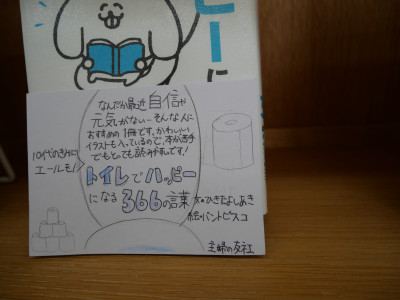 ピーに
なんだか最近自信や
元気がない…そんな人に
おすすめの1冊です。かわいい
イラストも入っているので、本が苦手
でもとっても読みやすいです!
10代のきみに
エールを!
トイレでハッピー
になる366の言葉
文・ひきたよしあき
絵・バントビスコ
主婦の友社